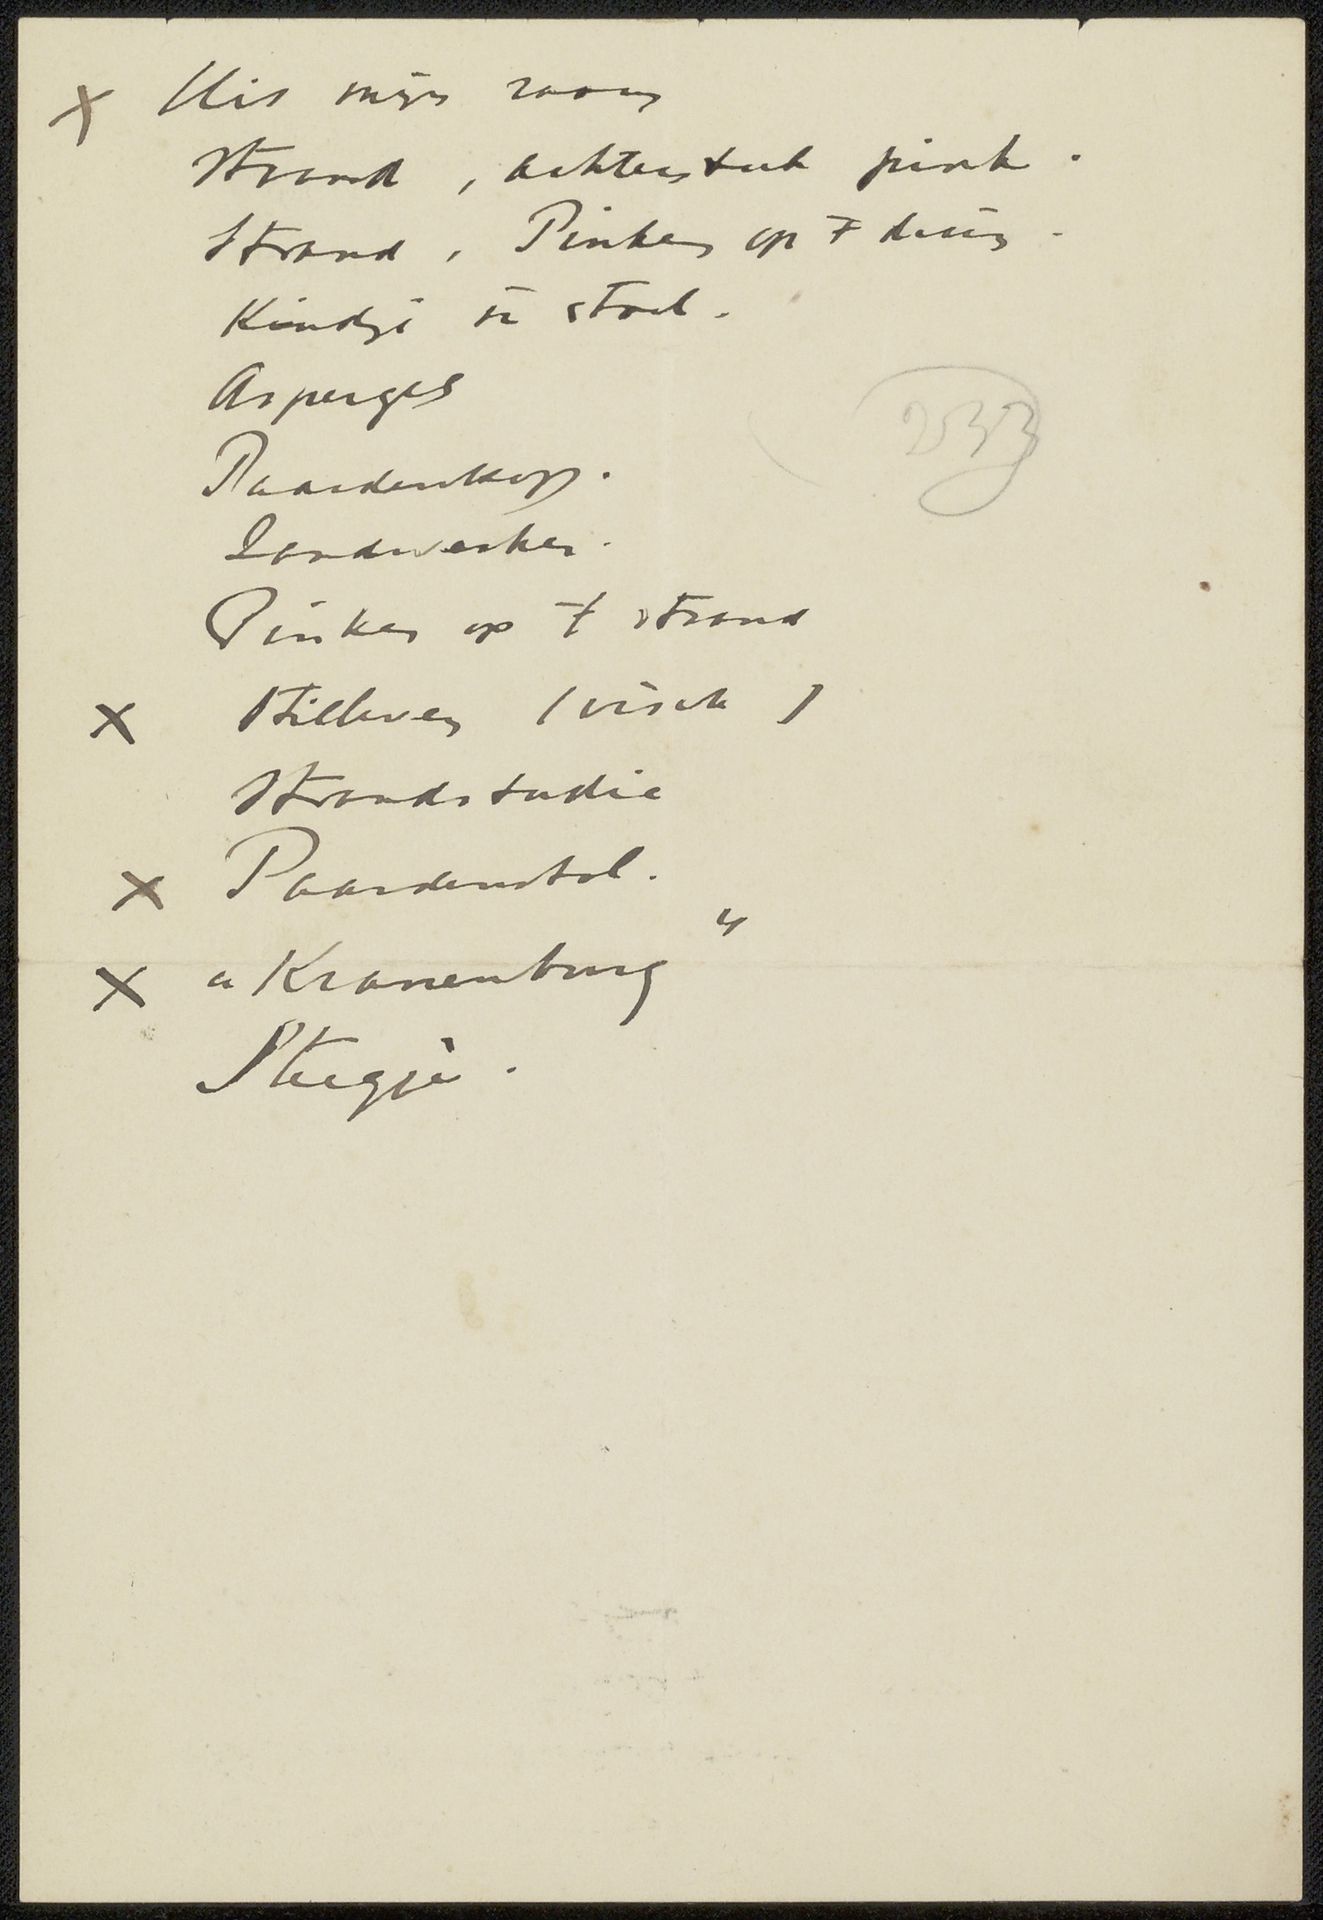 x Uit mijn raam
Strand, achterstuk pink.
Strand, Pinken op 't duin.
Kindje in stoel.
Asperges
Paardenkop.
Landwerker.
Pinken op 't strand
x Stilleven (visch)
Strandstudie
x Paardenstal.
x "Kranenburg"
Steegje.
233